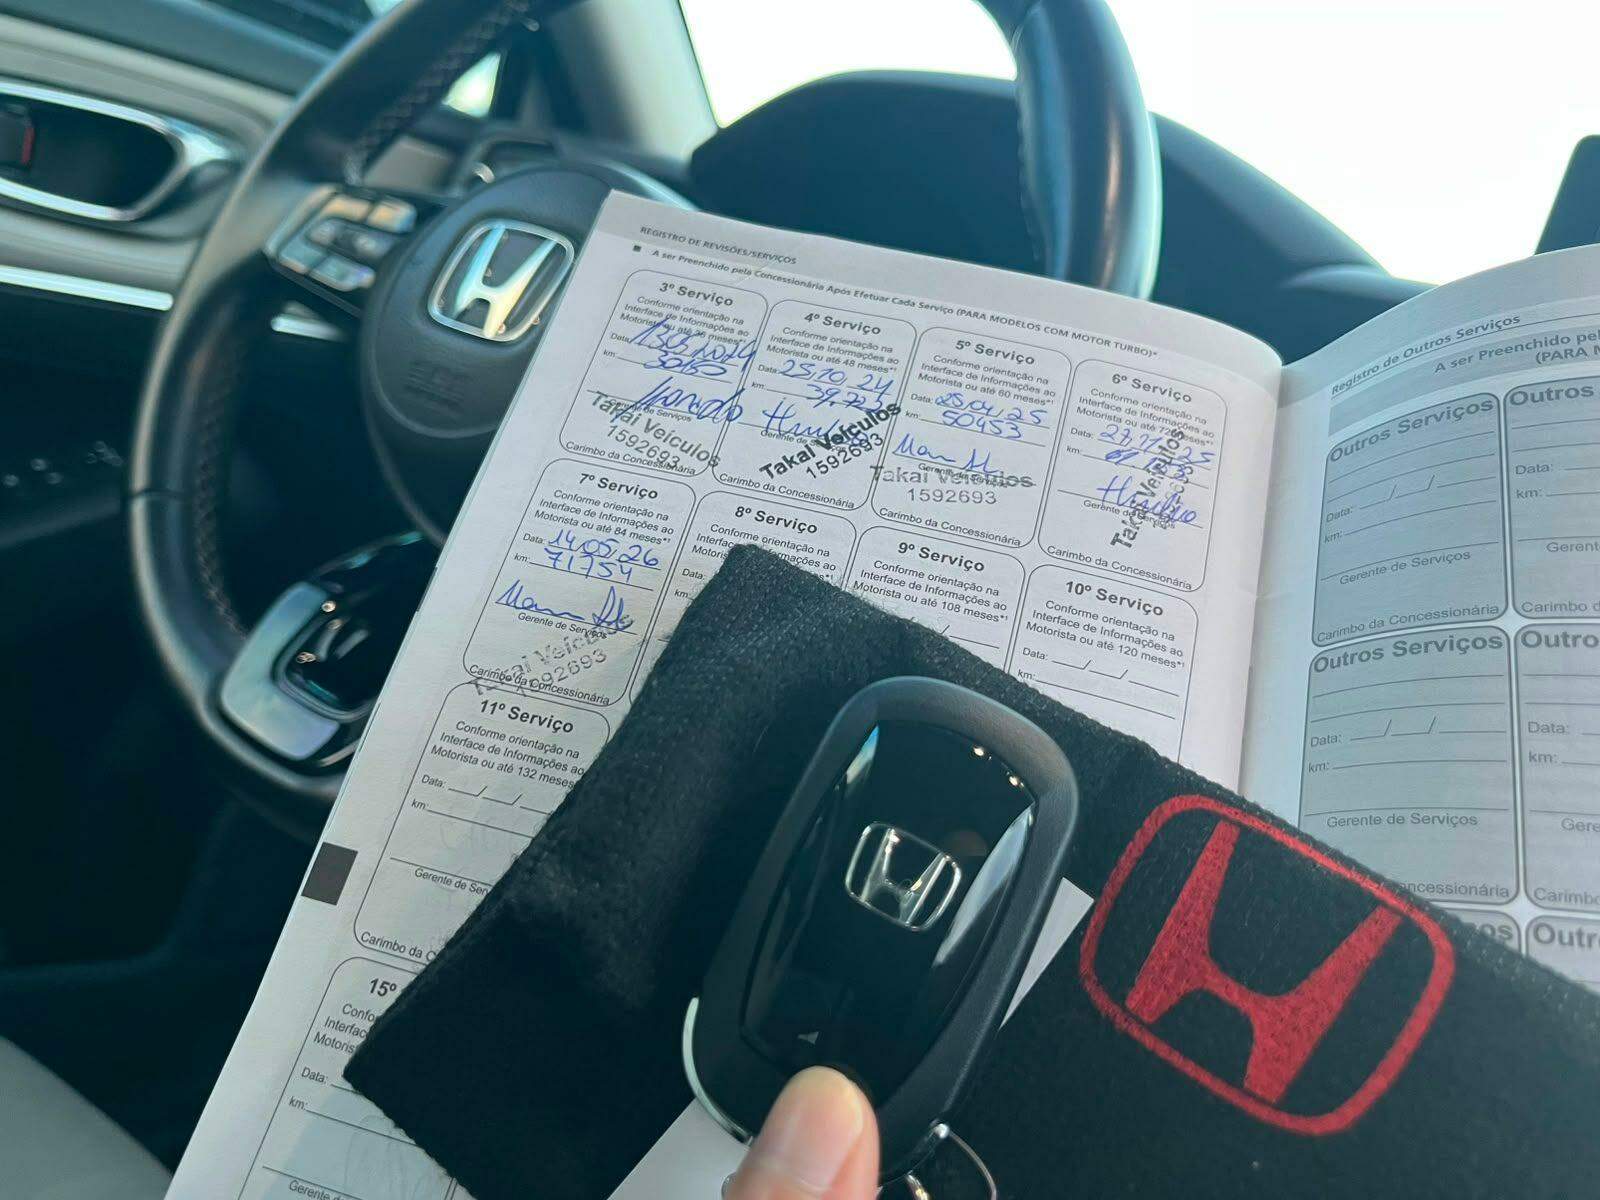 REGISTRO DE REVISÕES/SERVIÇOS
■ A ser Preenchido pela Concessionária Após Efetuar Cada Serviço (PARA MODELOS COM MOTOR TURBO)*
3º Serviço
Conforme orientação na
Interface de Informações ao
Motorista ou até 36 meses*¹
Data:
km:
Gerente de Serviços
Takai Veículos
1592693
Carimbo da Concessionária
4º Serviço
Conforme orientação na
Interface de Informações ao
Motorista ou até 48 meses*¹
Data: 25.10.24
km: 39.725
Gerente de
Takai Veículos
1592693
Carimbo da Concessionária
5º Serviço
Conforme orientação na
Interface de Informações ao
Motorista ou até 60 meses*¹
Data: 25.04.25
km: 50453
Gerente de Serviços
Takai Veículos
1592693
Carimbo da Concessionária
6º Serviço
Conforme orientação na
Interface de Informações ao
Motorista ou até 72 meses*¹
Data: 27.11.25
km:
Gerente de Serviços
Takai Veículos
Carimbo da Concessionária
7º Serviço
Conforme orientação na
Interface de Informações ao
Motorista ou até 84 meses*¹
Data: 14.05.26
km: 71754
Gerente de Serviços
Takai Veículos
1592693
Carimbo da Concessionária
8º Serviço
Conforme orientação na
Data:
km:
9º Serviço
Conforme orientação na
Interface de Informações ao
Motorista ou até 108 meses*¹
10º Serviço
Conforme orientação na
Interface de Informações ao
Motorista ou até 120 meses*¹
Data: __/__/__
km:
11º Serviço
Conforme orientação na
Interface de Informações ao
Motorista ou até 132 meses
Data: __/__/__
km:
Gerente de Ser
Carimbo da C
15º
Confo
Interfac
Motoris
Data:
km:
Gerente
Registro de Outros Serviços
A ser Preenchido pe
(PARA M
Outros Serviços
Data: __/__/__
km:
Gerente de Serviços
Carimbo da Concessionária
Outros
Data:
km:
Gerent
Carimbo d
Outros Serviços
Data: __/__/__
km:
Gerente de Serviços
ncessionária
Outro
Data:
km:
Gere
Carimb
os
Outr